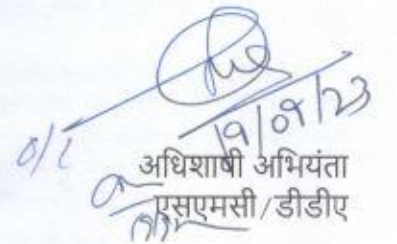 19/09/23
O/C
अधिशाषी अभियंता
एसएमसी/डीडीए